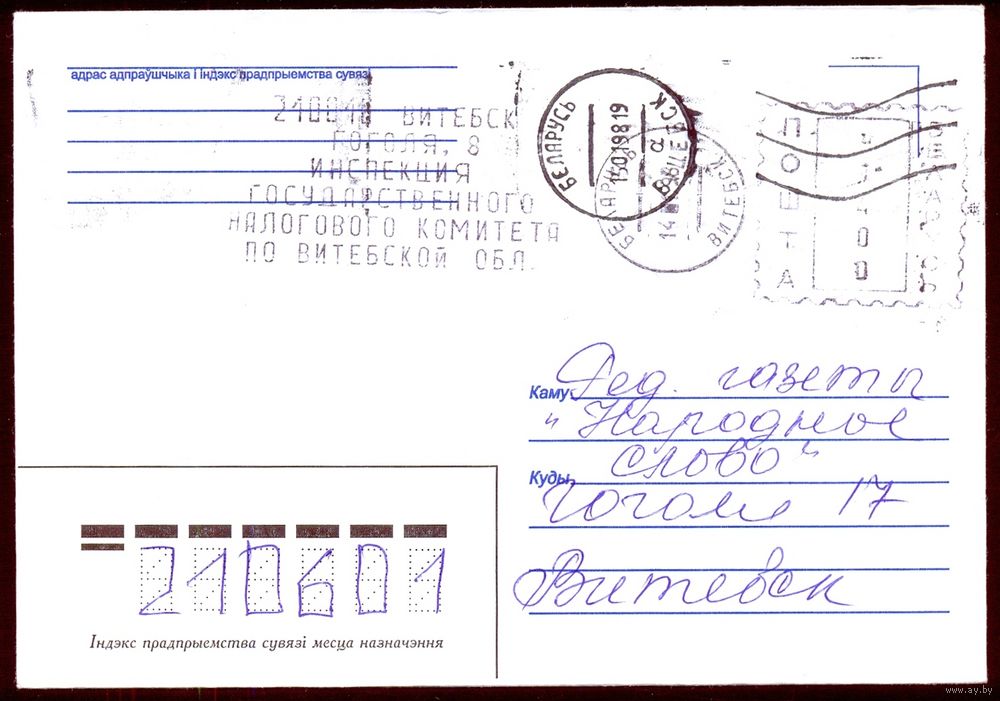 адрас адпраўшчыка і індэкс прадпрыемства сувязі
ВИТЕБСК
ГОГОЛЯ, 8
ИНСПЕКЦИЯ
ГОСУДАРСТВЕННОГО
НАЛОГОВОГО КОМИТЕТА
ПО ВИТЕБСКОЙ ОБЛ.
БЕЛАРУСЬ
ВІЦЕБСК
а
ВИТЕБСК
ПОЧТА
Каму Ред. газеты
"Народное
слово"
Куды Гоголя 17
Витебск
210601
Індэкс прадпрыемства сувязі месца назначэння
www.ay.by